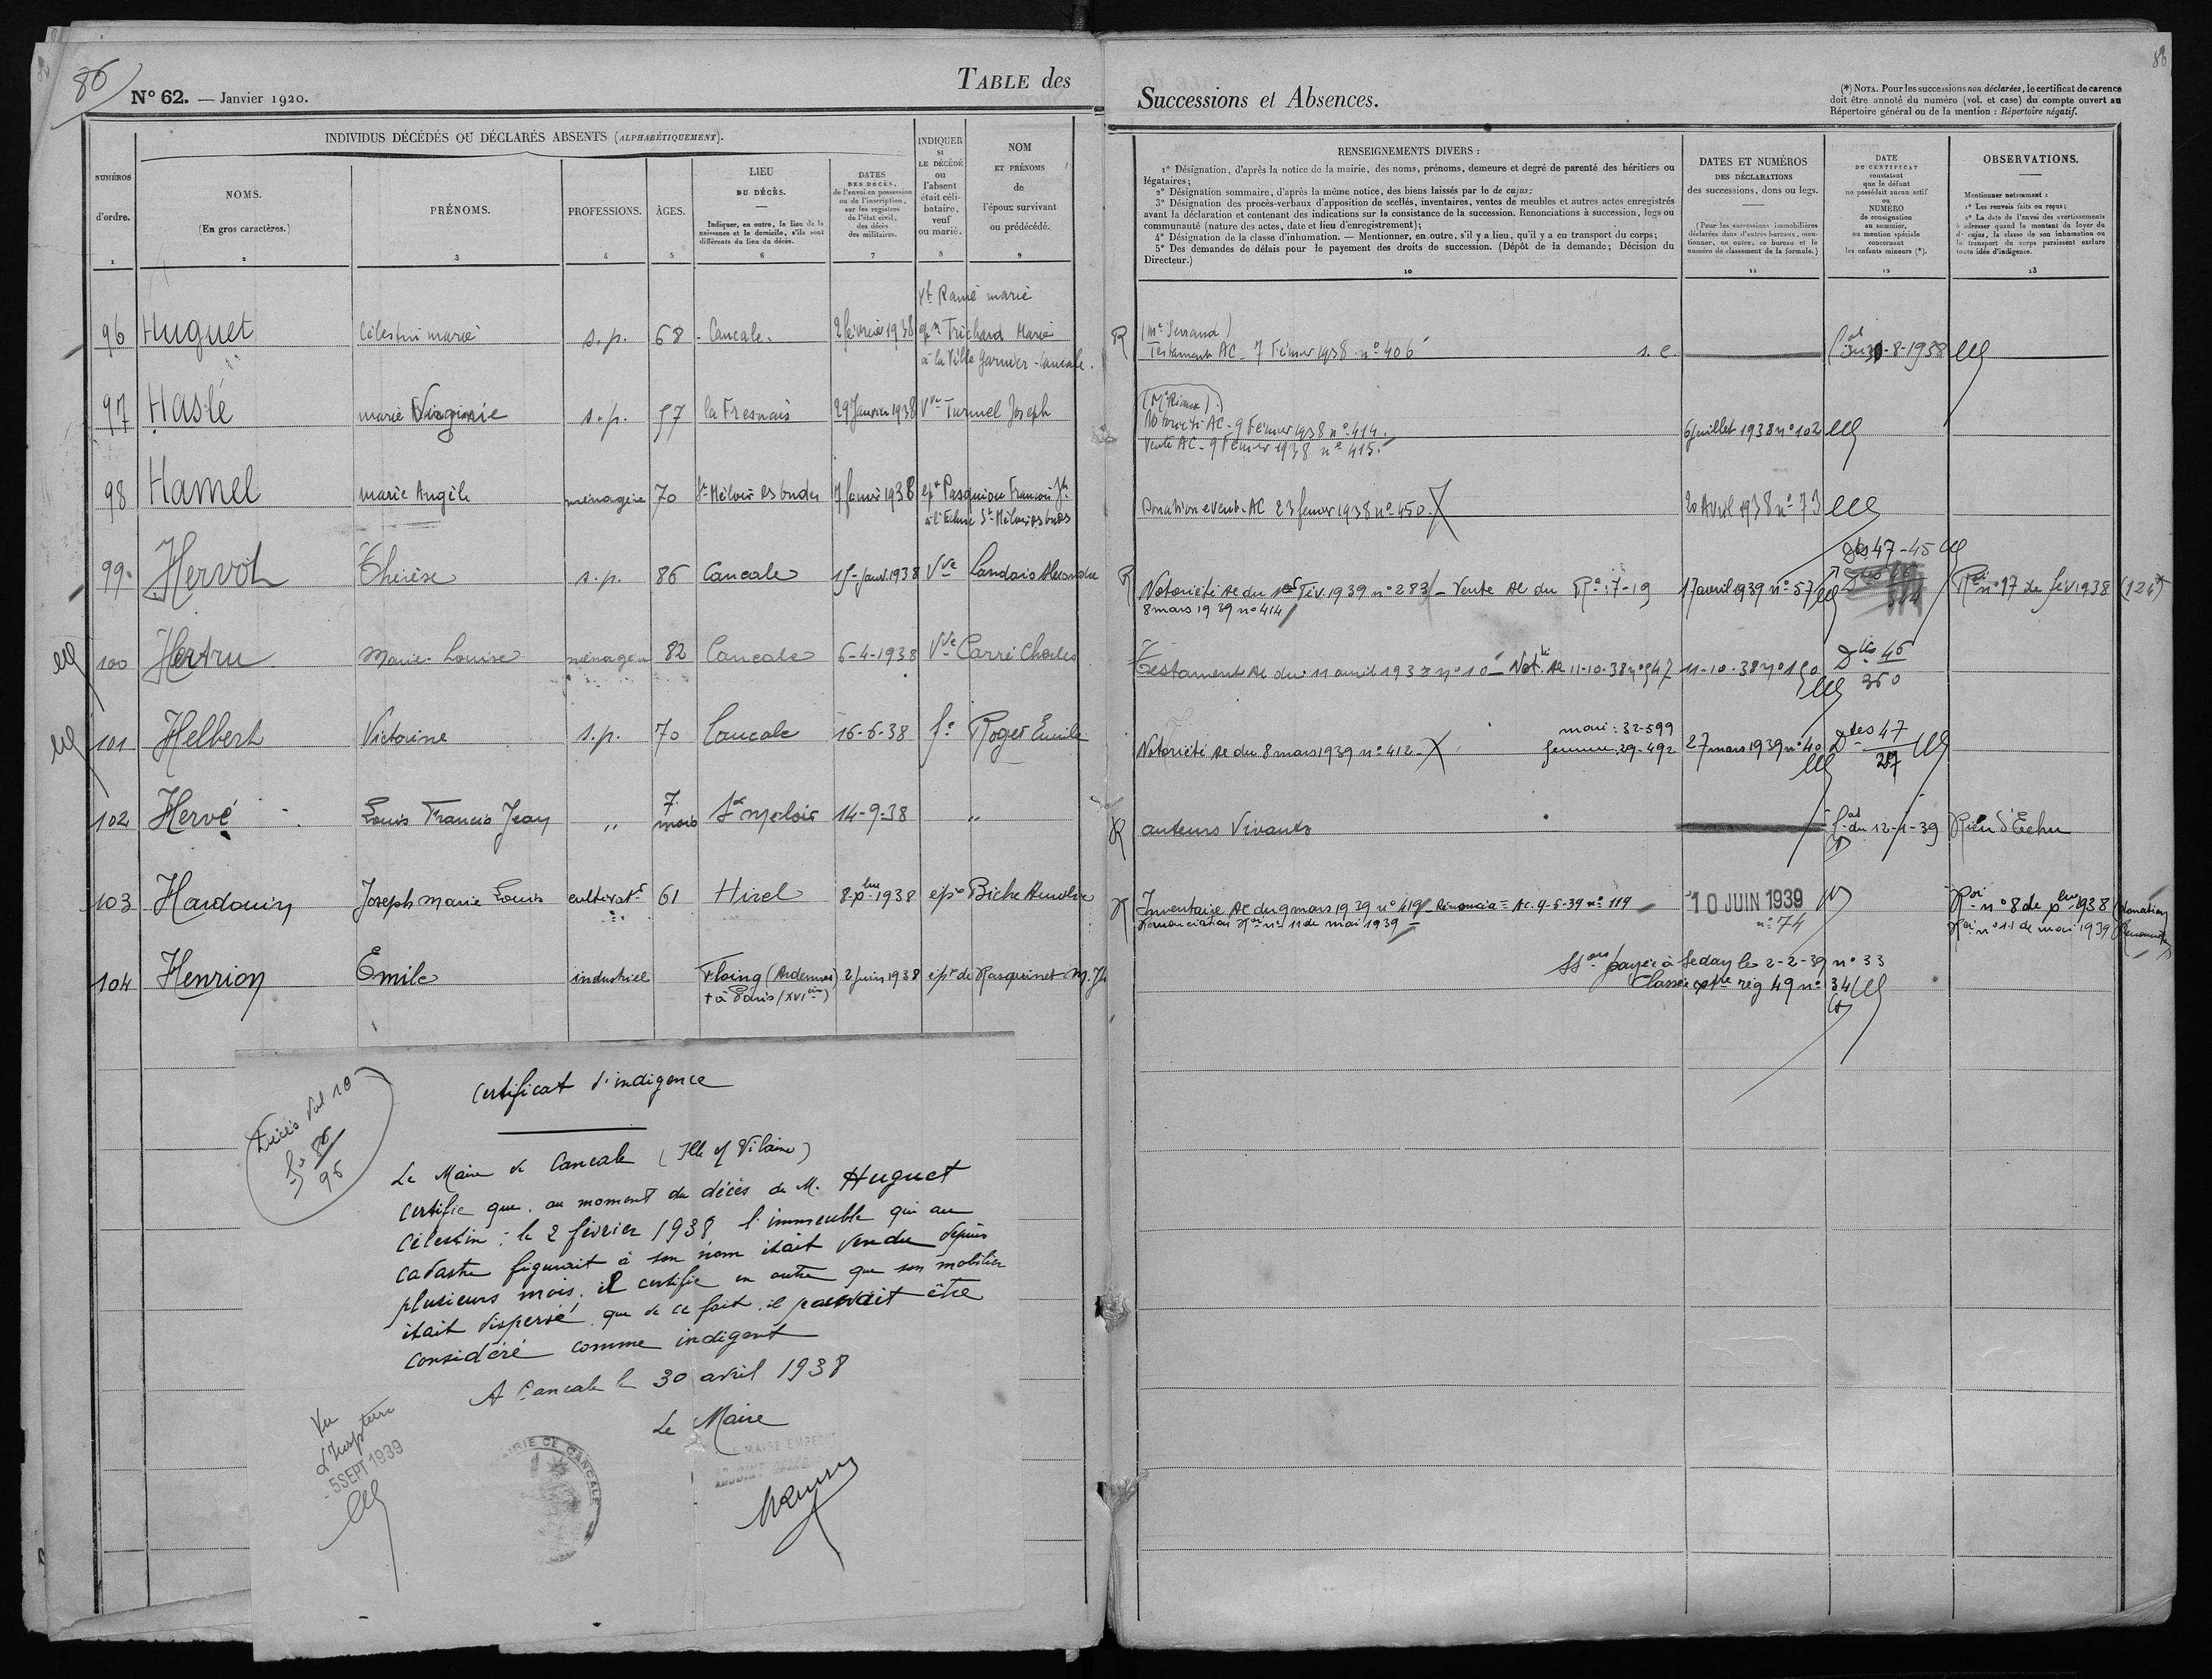 86
N° 62. — Janvier 1920.
TABLE des
INDIVIDUS DÉCÉDÉS OU DÉCLARÉS ABSENTS (ALPHABÉTIQUEMENT).
NUMÉROS d'ordre.
1
NOMS.
(En gros caractères.)
2
PRÉNOMS.
3
PROFESSIONS.
4
ÂGES.
5
LIEU
DU DÉCÈS.
Indiquer, en outre, le lieu de la
naissance et le domicile, s'ils sont
différents du lieu du décès.
6
DATES
DES DÉCÈS,
de l'envoi en possession
ou de l'inscription,
sur les registres
de l'état civil,
des décès
des militaires.
7
INDIQUER
si
LE DÉCÉDÉ
ou
l'absent
était céli-
bataire,
veuf
ou marié.
8
NOM
ET PRÉNOMS
de
l'époux survivant
ou prédécédé.
9
96 Huguet Célestin marie s.p. 68 Cancale. 2 février 1938 Vf Ramé marie
epx Trichard Marie
à la Ville Garnier - Cancale.
97 Haslé marie Virginie s.p. 57 la Fresnais 29 Janvier 1938 Vve Turmel Joseph
98 Hamel marie Angèle ménagère 70 St Méloir es ondes 7 janvier 1938 epx Pasquiou Francois Jh
à l'Ecluse St Méloir es ondes
99 Hervot Thérèse s.p. 86 Cancale 15 Janv. 1938 Vve Landais Alexandre
100 Hertru Marie-Louise ménagère 82 Cancale 6-4-1938 Vve Carré Charles
101 Helbert Victorine s.p. 70 Cancale 16-6-38 fe Roger Emile
102 Hervé Louis Francis Jean " 7 mois St Meloir 14-9-38 "
103 Hardouin Joseph Marie Louis cultivatr 61 Hirel 8 Xbre 1938 epx Biche
104 Henrion Emile industriel Floing (Ardennes) 2 Juin 1938 epx de Rasquinet M. Jh
+ à Paris (XVIème)
Certificat d'indigence
Décès Vol 10
fo 86
96
Le Maire de Cancale (Ille et Vilaine)
certifie que, au moment du décès de M. Huguet
Célestin, le 2 février 1938 l'immeuble qui au
cadastre figurait à son nom était vendu depuis
plusieurs mois. il certifie en outre que son mobilier
était dispersé, que de ce fait, il pouvait être
considéré comme indigent
A Cancale le 30 avril 1938
Le Maire
LE MAIRE EMPÊCHÉ
MAIRIE DE CANCALE
Vu
L'Inspecteur
- 5 SEPT 1939
Successions et Absences.
86
(*) NOTA. Pour les successions non déclarées, le certificat de carence
doit être annoté du numéro (vol. et case) du compte ouvert au
Répertoire général ou de la mention : Répertoire négatif.
RENSEIGNEMENTS DIVERS :
1° Désignation, d'après la notice de la mairie, des noms, prénoms, demeure et degré de parenté des héritiers ou
légataires;
2° Désignation sommaire, d'après la même notice, des biens laissés par le de cujus;
3° Désignation des procès-verbaux d'apposition de scellés, inventaires, ventes de meubles et autres actes enregistrés
avant la déclaration et contenant des indications sur la consistance de la succession. Renonciations à succession, legs ou
communauté (nature des actes, date et lieu d'enregistrement);
4° Désignation de la classe d'inhumation. — Mentionner, en outre, s'il y a lieu, qu'il y a eu transport du corps;
5° Des demandes de délais pour le payement des droits de succession. (Dépôt de la demande; Décision du
Directeur.)
10
DATES ET NUMÉROS
DES DÉCLARATIONS
des successions, dons ou legs.
(Pour les successions immobilières
déclarées dans d'autres bureaux, men-
tionner, en outre, ce bureau et le
numéro de classement de la formule.)
11
DATE
DU CERTIFICAT
constatant
que le défunt
ne possédait aucun actif
ou
NUMÉRO
de consignation
au sommier,
ou mention spéciale
concernant
les enfants mineurs (*).
12
OBSERVATIONS.
Mentionner notamment :
1° Les renvois faits ou reçus;
2° La date de l'envoi des avertissements
à adresser quand le montant du loyer du
de cujus, la classe de son inhumation ou
le transport du corps paraissent exclure
toute idée d'indigence.
13
R (Me Serrand)
Testament AC - 7 Février 1938 - n° 406 s.e. -8-1938
(Me Rioux)
Notoriété AC - 9 Février 1938 n° 414.
Vente AC - 9 Février 1938 n° 415. 6 Juillet 1938 n° 102
Donation event. AC 23 fevrier 1938 n° 450. 20 Avril 1938 n° 73
R Notoriété Ac du 1er Fév. 1939 n° 283 - Vente Ac du Ra : 7-19 17 avril 1939 n° 57 47-45 Roi n° 17 de fév 1938 (124)
8 mars 1939 n° 414
Testament Ac du 11 avril 1938 n° 10 - Notté Ac 11-10-38 n° 547 11-10-38 n° 150 Des 46
360
mari : 32-599
Notoriété Ac du 8 mars 1939 n° 412. femme : 29-492 27 mars 1939 n° 40 Des 47
R auteurs vivants Cat du 12-1-39 Rien d'Echu
R Inventaire Ac du 9 mars 1939 n° 419 - Renoncia= Ac. 4-5-39 n° 119 10 JUIN 1939 Roi n° 8 de Xbre 1938 (donation)
Renonciation Roi n° 11 de mai 1939 n° 74 Roi n° 11 de mai 1939
SSons payée à Sedan le 2-2-39 n° 33
Classée reg 49 n° 34